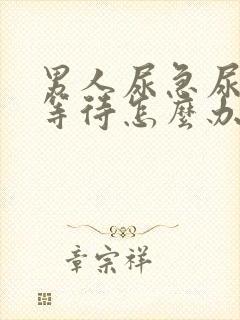 男人尿急尿
等待怎麼办
章宗祥